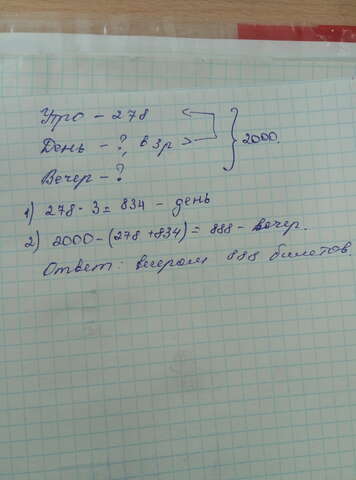 Утро - 278
День - ?, в 3р > } 2000.
Вечер - ?
1) 278 · 3 = 834 - день
2) 2000 - (278 + 834) = 888 - вечер.
Ответ: вечером 888 билетов.